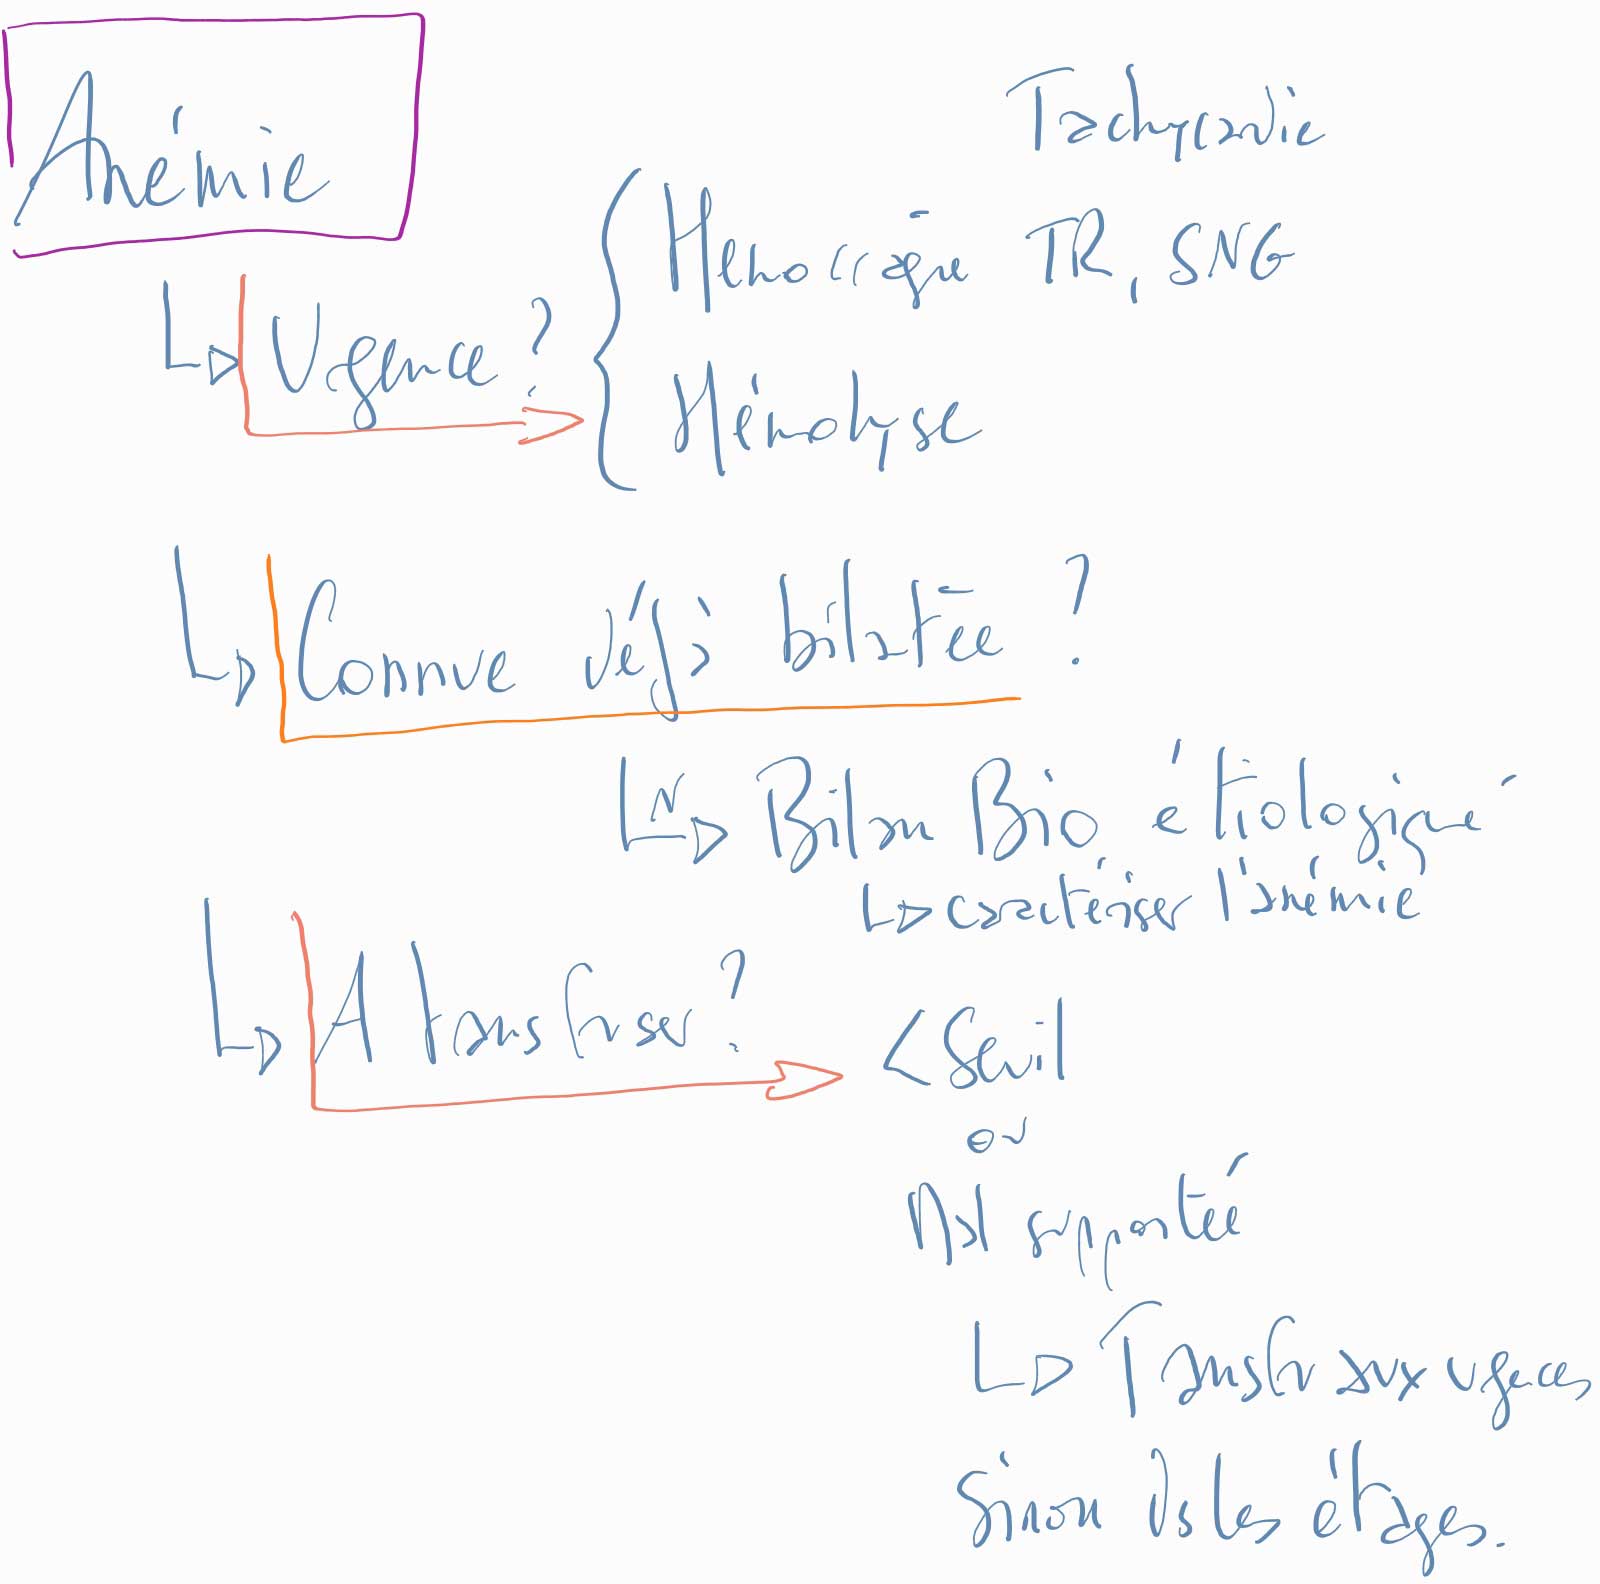 Anémie
Tachycardie
Hémorragie TR, SNG
Urgence ?
Hémolyse
Connue déjà bilatée ?
N Bilan Bio étiologique
caractériser l'anémie
A transfuser ?
< Seuil
ou
Mal supportée
Transfu aux urgences
Sinon ds les étages.